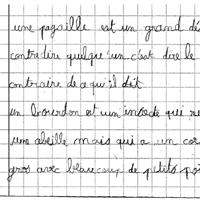 une pagaille est un grand dés
contredire quelqu'un c'est dire le
contraire de ce qu'il dit
un bourdon est un insecte qui re
une abeille mais qui a un cor
gros avec beaucoup de petits poi